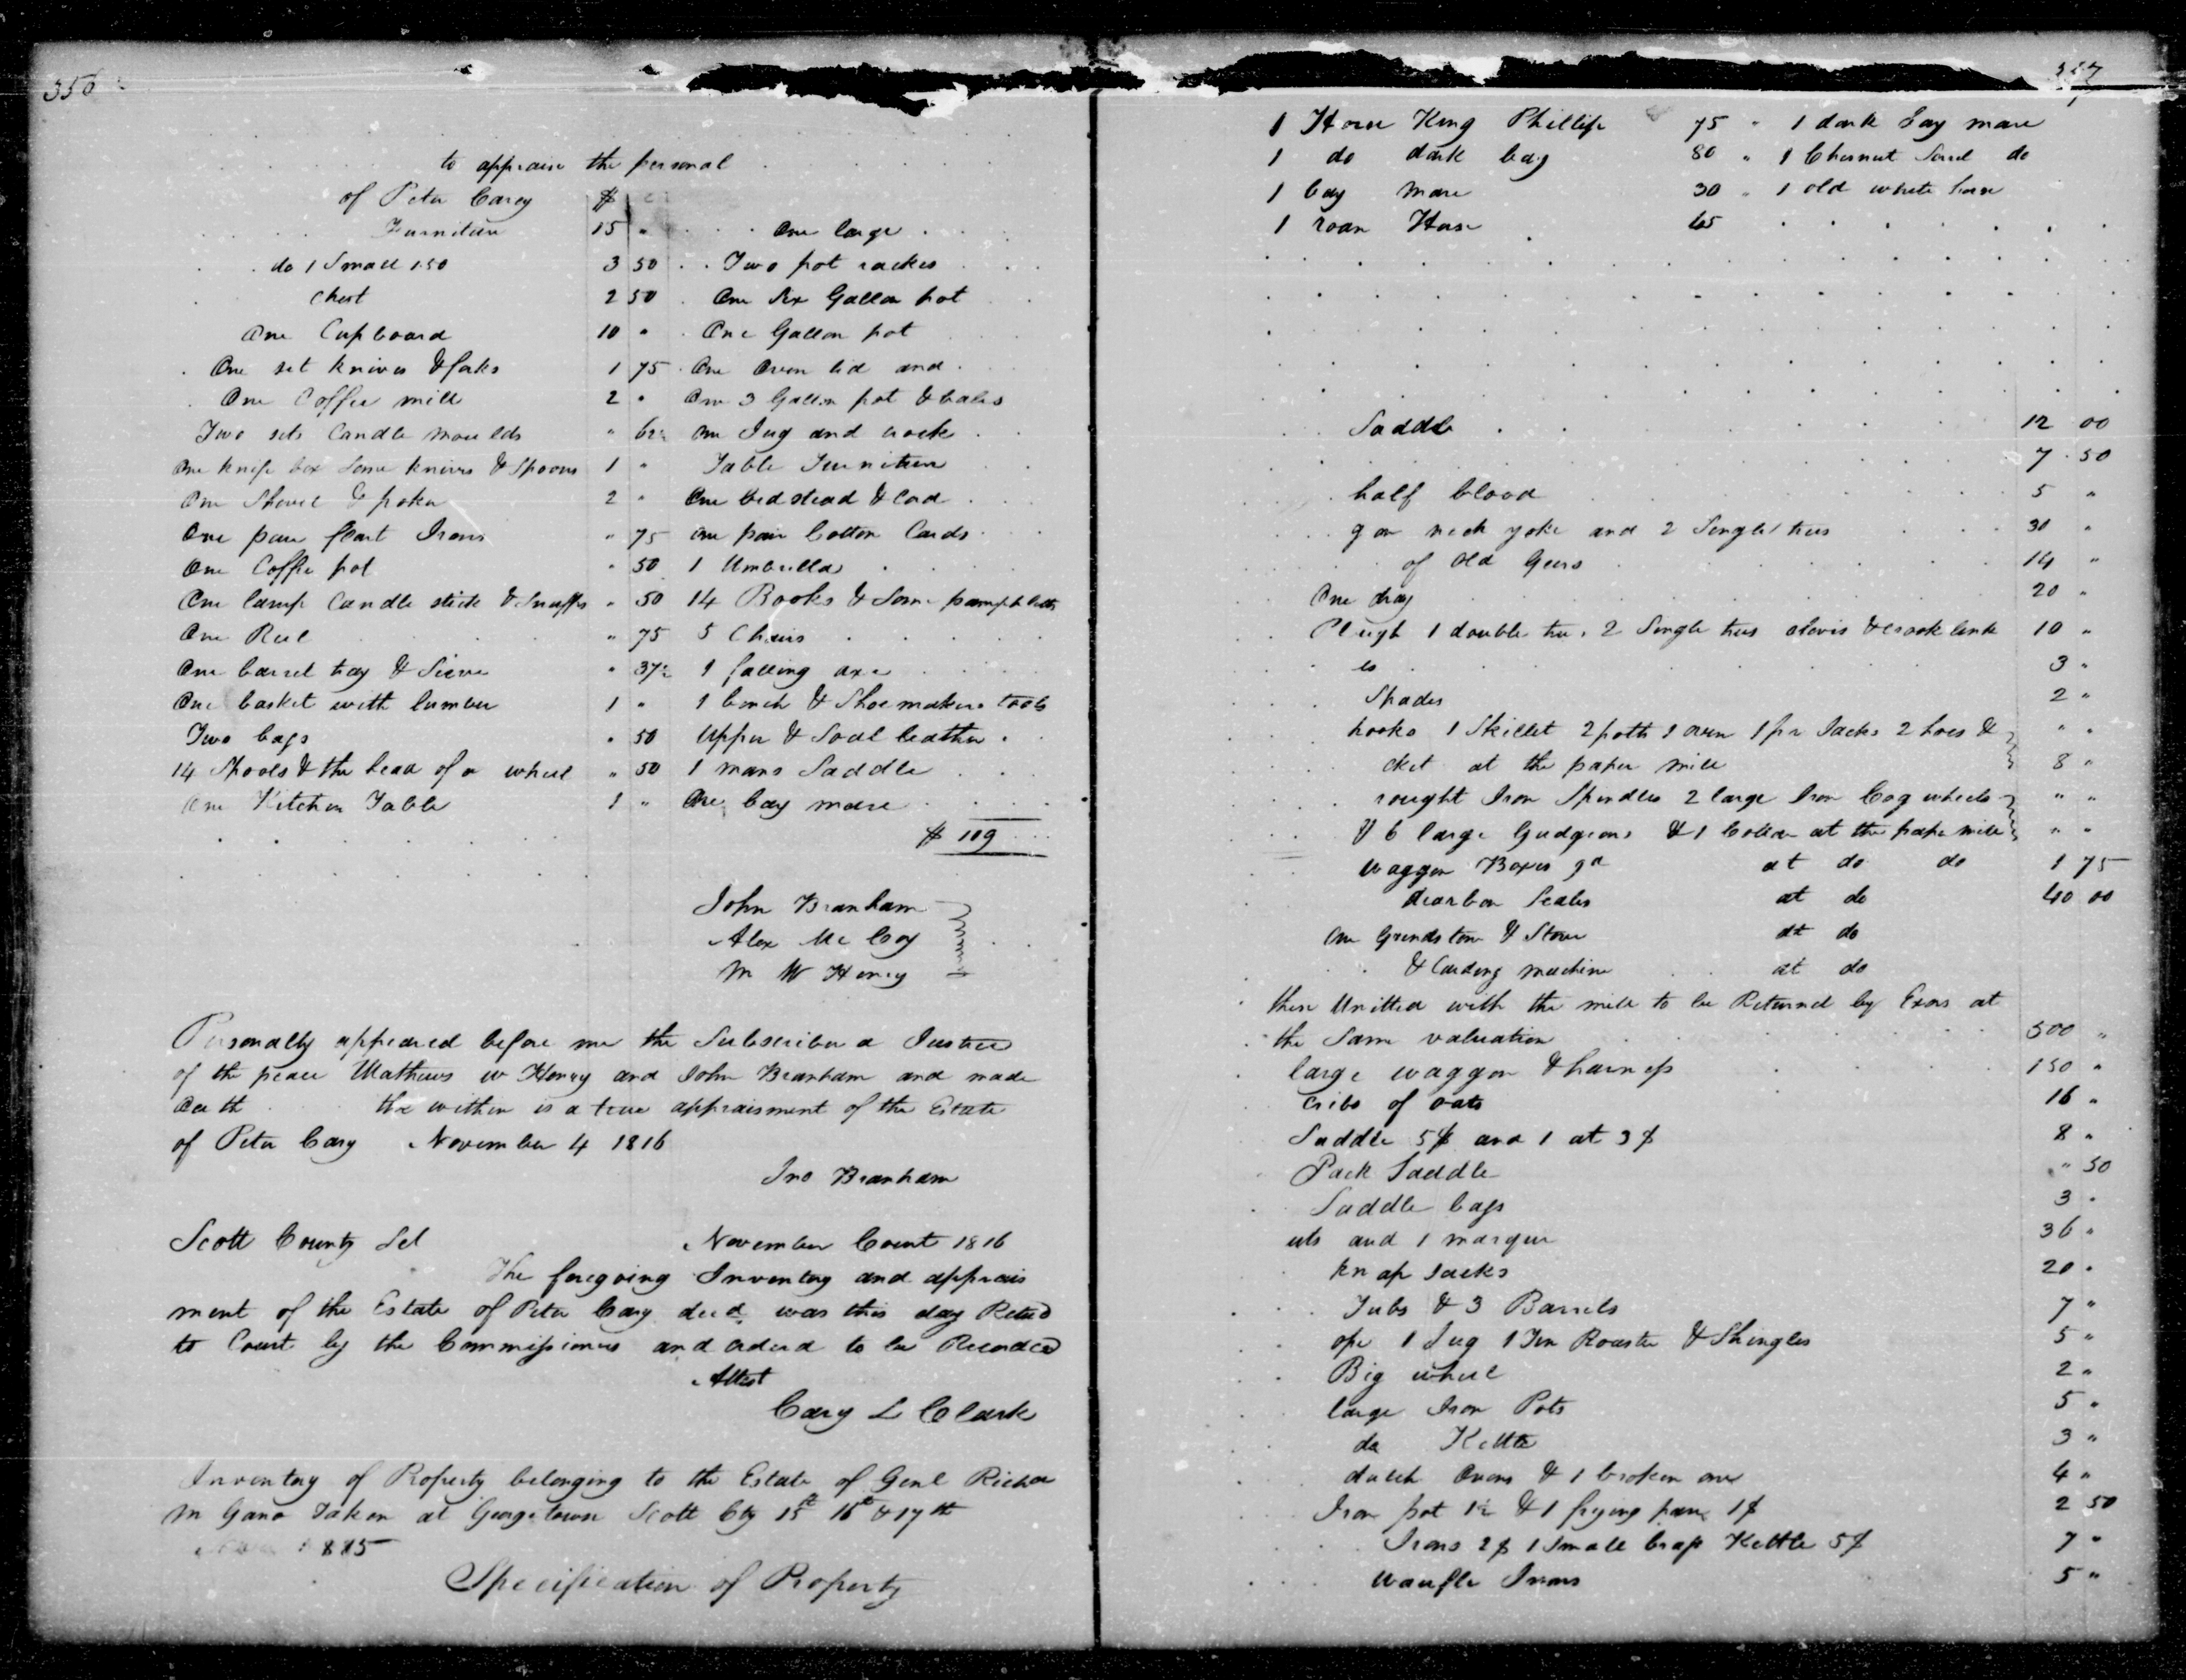 356
to appraise the personal
of Peter Carey $ c
Furniture 15 " One large
do 1 Small 1.50 3 50 Two pot rackes
Chest 2 50 One Six Gallon pot
One Cupboard 10 " One Gallon pot
One set knives & forks 1 75 One Oven lid and
One Coffee mill 2 " One 3 Gallon pot & bales
Two sets Candle moulds " 62½ One Jug and crock
One knife box Some knives & Spoons 1 " Table Furniture
One Shovel & poker 2 " One bedstead & Cord
One pair flat Irons " 75 one pair Cotton Cards
One Coffee pot " 50 1 Umbrella
One lamp Candle stick & Snuffers " 50 14 Books & Some pamphlets
One Reel " 75 5 Chairs
One barrel tray & Sieve " 37½ 1 falling axe
One basket with lumber 1 " 1 bench & Shoemakers tools
Two bags " 50 Upper & Soal leather
14 Spools & the head of a wheel " 50 1 mans Saddle
One Kitchen Table 1 " One bay mare
$ 109
John Branham
Alex Mc Coy
M W Henry
Personally appeared before me the Subscriber a Justice
of the peace Mathews W Henry and John Branham and made
Oath the within is a true appraisment of the Estate
of Peter Cary November 4 1816
Jno Branham
Scott County Sct November Court 1816
The foregoing Inventory and apprais
ment of the Estate of Peter Cary decd was this day Retud
to Court by the Commissioners and orderd to be Recorded
Attest
Cary L Clark
Inventory of Property belonging to the Estate of Genl Richd
M Gano Taken at Georgetown Scott Cty 15th 16th & 17th
1815
Specification of Property
357
1 Horse King Phillip 75 " 1 dark bay mare
1 do dark bay 80 " 1 Chesnut Sorrel do
1 bay mare 30 " 1 old white horse
1 roan Horse 65
Saddle 12 00
7 50
half blood 5 "
neck yoke and 2 Single trees 30 "
of Old Gears 14 "
One dray 20 "
Plough 1 double tree 2 Single trees clevis & crook link 10 "
3 "
Spades 2 "
hooks 1 Skillet 2 potts 1 oven 1 pr Jacks 2 hoes & " "
cket at the paper mill 8 "
rought Iron Spindles 2 large Iron Cog wheels " "
& 6 large Gudgeons & 1 Collar at the paper mill " "
Waggon Boxes at do do 1 75
dearbon Scales at do 40 00
One Grindstone & Stove at do
& Carding machine at do
these Unitted with the mill to be Returned by Exors at
the Same valuation 500 "
large waggon & harness 150 "
cribs of oats 16 "
Saddle 5$ and 1 at 3$ 8 "
Pack Saddle " 50
Saddle bags 3 "
nts and 1 marque 36 "
knap sacks 20 "
Tubs & 3 Barrels 7 "
ope 1 Jug 1 Tin Roaster & Shingles 5 "
Big wheel 2 "
large Iron Pots 5 "
do Kettle 3 "
dutch Ovens & 1 broken one 4 "
Iron pot 1½ & 1 frying pan 1$ 2 50
Irons 2$ 1 Small brass Kettle 5$ 7 "
Waufle Irons 5 "